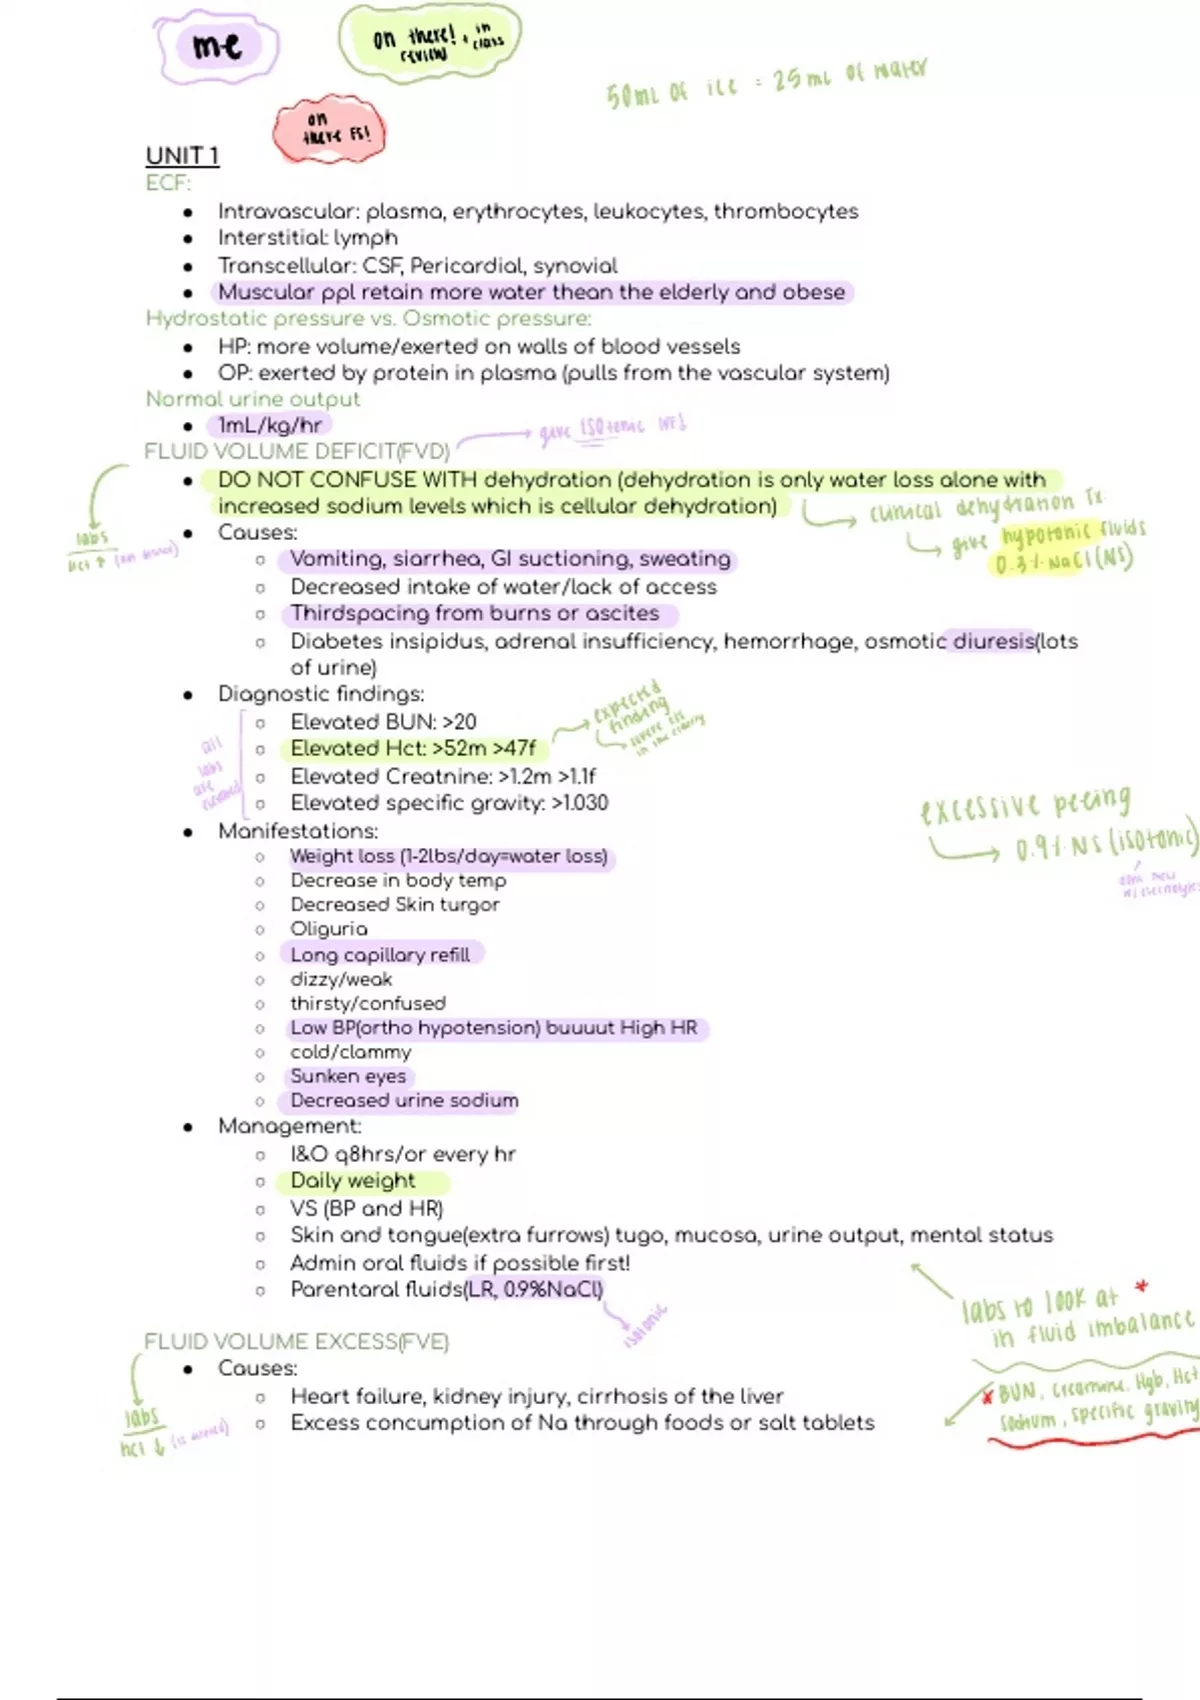 me
on there! + in
review class
50mL of ice = 25mL of water
on
there FS!
UNIT 1
ECF:
● Intravascular: plasma, erythrocytes, leukocytes, thrombocytes
● Interstitial: lymph
● Transcellular: CSF, Pericardial, synovial
● Muscular ppl retain more water thean the elderly and obese
Hydrostatic pressure vs. Osmotic pressure:
● HP: more volume/exerted on walls of blood vessels
● OP: exerted by protein in plasma (pulls from the vascular system)
Normal urine output
● 1mL/kg/hr
give ISOtonic IVF!
FLUID VOLUME DEFICIT(FVD)
● DO NOT CONFUSE WITH dehydration (dehydration is only water loss alone with
increased sodium levels which is cellular dehydration)
clinical dehydration Tx:
give hypotonic fluids
0.3% NaCl (NS)
labs
Hct ↑
● Causes:
○ Vomiting, siarrhea, GI suctioning, sweating
○ Decreased intake of water/lack of access
○ Thirdspacing from burns or ascites
○ Diabetes insipidus, adrenal insufficiency, hemorrhage, osmotic diuresis(lots
of urine)
● Diagnostic findings:
○ Elevated BUN: >20
○ Elevated Hct: >52m >47f
○ Elevated Creatnine: >1.2m >1.1f
○ Elevated specific gravity: >1.030
expected
finding
all
labs
are
elevated
● Manifestations:
○ Weight loss (1-2lbs/day=water loss)
○ Decrease in body temp
○ Decreased Skin turgor
○ Oliguria
○ Long capillary refill
○ dizzy/weak
○ thirsty/confused
○ Low BP(ortho hypotension) buuuut High HR
○ cold/clammy
○ Sunken eyes
○ Decreased urine sodium
excessive peeing
0.9% NS (isotonic)
● Management:
○ I&O q8hrs/or every hr
○ Daily weight
○ VS (BP and HR)
○ Skin and tongue(extra furrows) tugo, mucosa, urine output, mental status
○ Admin oral fluids if possible first!
○ Parentaral fluids(LR, 0.9%NaCl)
isotonic
labs to look at *
in fluid imbalance
* BUN, creatinine, Hgb, Hct
sodium, specific gravity
FLUID VOLUME EXCESS(FVE)
● Causes:
○ Heart failure, kidney injury, cirrhosis of the liver
○ Excess concumption of Na through foods or salt tablets
labs
hct ↓